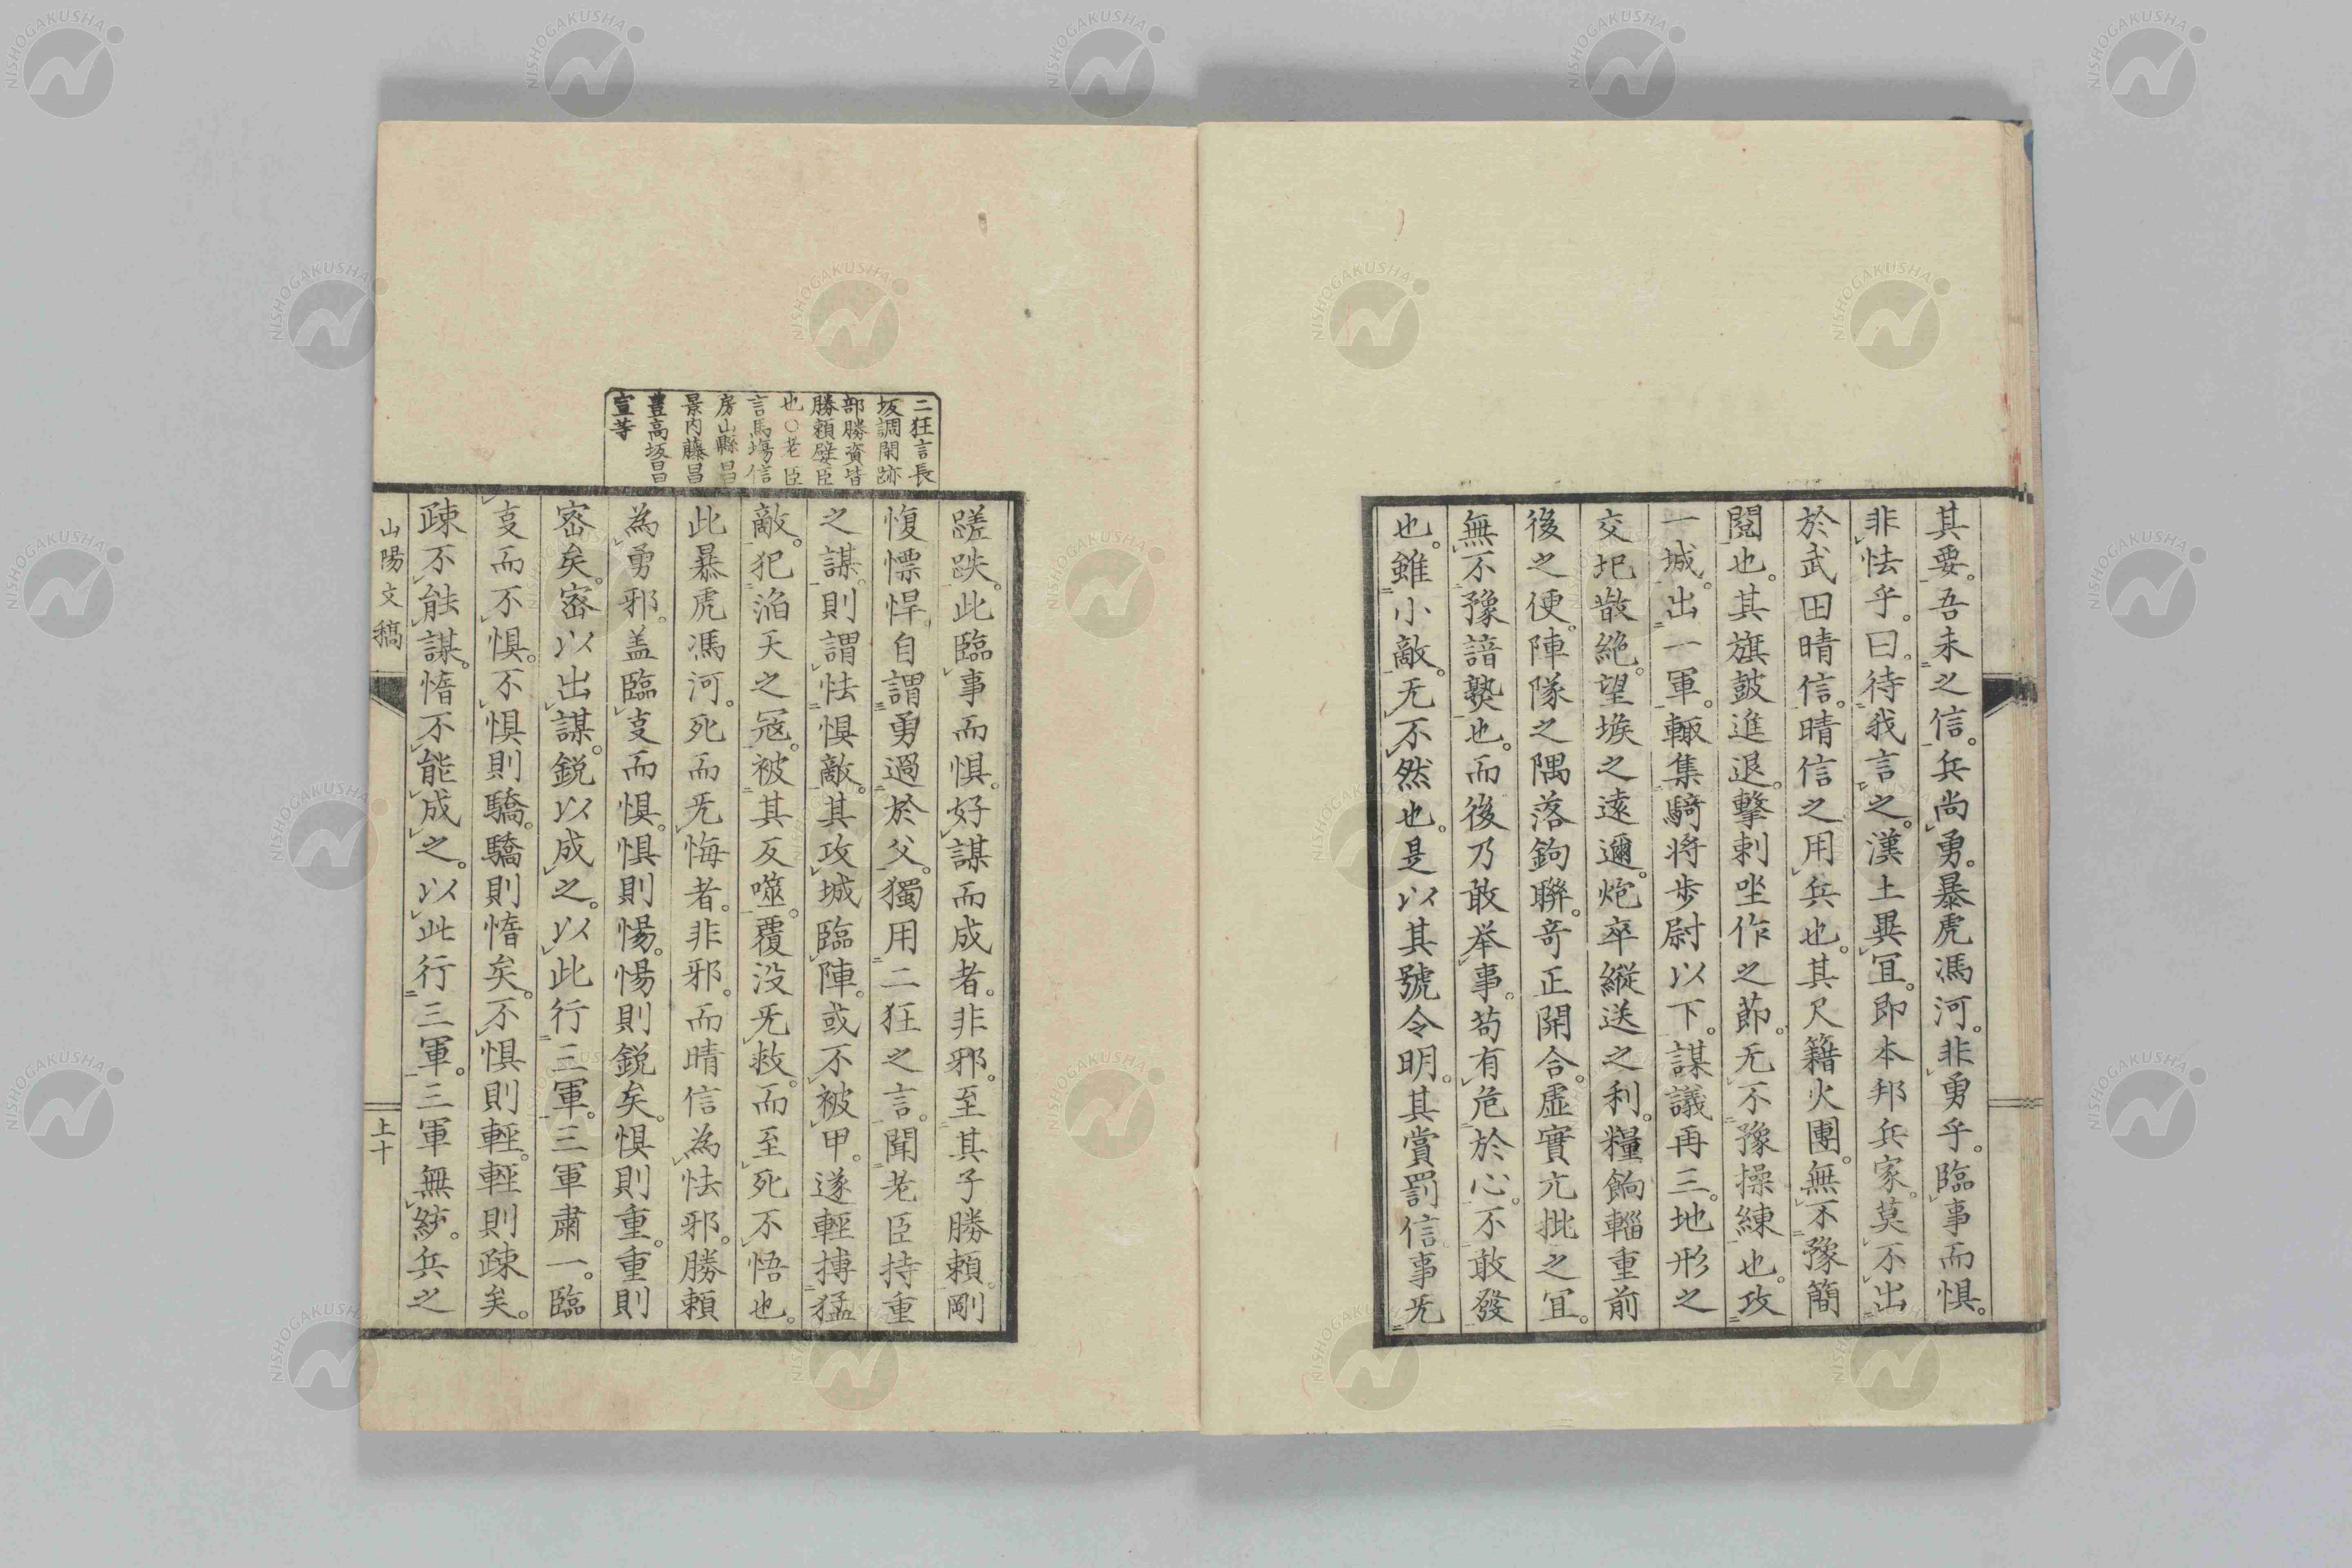 其要。吾未之信。兵尚勇。暴虎馮河。非勇乎。臨事而惧。
非怯乎。曰。待我言之。漢土異冝。即本邦兵家。莫不出
於武田晴信。晴信之用兵也。其尺籍火團。無不豫簡
閲也。其旗鼓進退。擊刺坐作之節。无不豫操練也。攻
一城。出一軍。輙集騎将歩尉以下。謀議再三。地形之
交圯散絶。望堠之遠邇。炮卒縦送之利。糧餉輜重前
後之便。陣隊之隅落鉤聯。奇正開合。虚實亢批之冝。
無不豫諳熟也。而後乃敢举事。苟有危於心。不敢發
也。雖小敵。无不然也。是以其號令明。其賞罰信事无
二狂言長
坂調閑跡
部勝資皆
勝頼嬖臣
也○老臣
言馬塲信
房山縣昌
景内藤昌
豊高坂昌
宣等
蹉跌。此臨事而惧。好謀而成者。非邪。至其子勝頼。剛
愎慓悍。自謂勇過於父。獨用二狂之言。聞老臣持重
之謀。則謂怯惧敵。其攻城臨陣。或不被甲。遂輕搏猛
敵。犯滔天之冦。被其反噬。覆没无救。而至死不悟也。
此暴虎馮河。死而无悔者。非邪。而晴信為怯邪。勝頼
為勇邪。盖臨㕝而惧。惧則惕。惕則鋭矣。惧則重。重則
密矣。密以出謀。鋭以成之。以此行三軍。三軍肅一。臨
㕝而不惧。不惧則驕。驕則惰矣。不惧則輕。輕則疎矣。
疎不能謀。惰不能成之。以此行三軍。三軍無紡。兵之
山陽文稿
上十
NISHOGAKUSHA